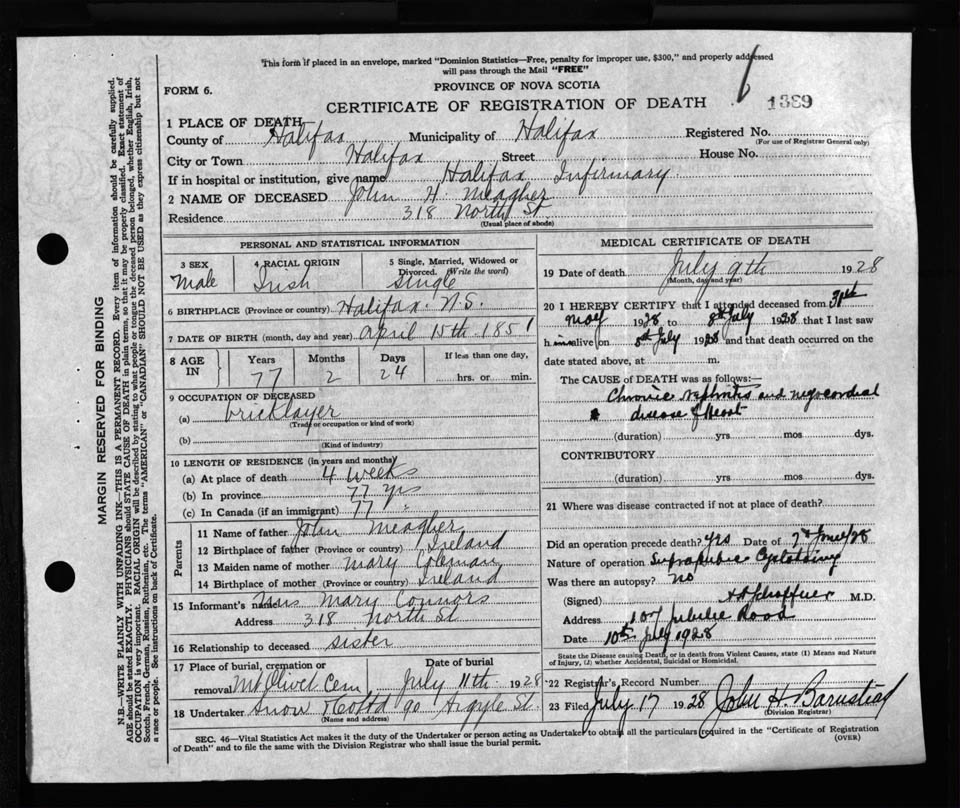 This form if placed in an envelope, marked "Dominion Statistics—Free, penalty for improper use, $300," and properly addressed
will pass through the Mail "FREE"
FORM 6.
PROVINCE OF NOVA SCOTIA
CERTIFICATE OF REGISTRATION OF DEATH
1389
1 PLACE OF DEATH
County of Halifax Municipality of Halifax Registered No.
(For use of Registrar General only)
City or Town Halifax Street House No.
If in hospital or institution, give name Halifax Infirmary
2 NAME OF DECEASED John H Meagher
Residence 318 North St.
(Usual place of abode)
MARGIN RESERVED FOR BINDING
N.B.—WRITE PLAINLY WITH UNFADING INK—THIS IS A PERMANENT RECORD. Every item of information should be carefully supplied.
AGE should be stated EXACTLY. PHYSICIANS should STATE CAUSE OF DEATH in plain terms, so that it may be properly classified. Exact statement of
OCCUPATION is very important. RACIAL ORIGIN will be described by stating to what people or tongue the deceased person belonged, whether English, Irish,
Scotch, French, German, Russian, Ruthenian, etc. The terms "AMERICAN" or "CANADIAN" SHOULD NOT BE USED as they express citizenship but not
a race or people. See instructions on back of Certificate.
PERSONAL AND STATISTICAL INFORMATION
3 SEX
Male
4 RACIAL ORIGIN
Irish
5 Single, Married, Widowed or
Divorced. (Write the word)
Single
6 BIRTHPLACE (Province or country) Halifax N.S.
7 DATE OF BIRTH (month, day and year) April 15th 1851
8 AGE IN
Years Months Days If less than one day,
77 2 24 hrs. or min.
9 OCCUPATION OF DECEASED
(a) bricklayer
(Trade or occupation or kind of work)
(b)
(Kind of industry)
10 LENGTH OF RESIDENCE (in years and months)
(a) At place of death 4 weeks
(b) In province 77 yrs
(c) In Canada (if an immigrant) 77 "
Parents
11 Name of father John Meagher
12 Birthplace of father (Province or country) Ireland
13 Maiden name of mother Mary Coleman
14 Birthplace of mother (Province or country) Ireland
15 Informant's name Mrs Mary Connors
Address 318 North St
16 Relationship to deceased sister
17 Place of burial, cremation or Date of burial
removal Mt Olivet Cem July 11th 1928
18 Undertaker Snow & Co Ltd 90 Argyle St.
(Name and address)
MEDICAL CERTIFICATE OF DEATH
19 Date of death July 9th 1928
(Month, day and year)
20 I HEREBY CERTIFY that I attended deceased from 31st
May 1928 to 8th July 1928 that I last saw
him alive on 8th July 1928 and that death occurred on the
date stated above, at m.
The CAUSE OF DEATH was as follows:—
Chronic nephritis and myocardial
disease of heart
(duration) yrs mos dys.
CONTRIBUTORY
(duration) yrs mos dys.
21 Where was disease contracted if not at place of death?
Did an operation precede death? yes Date of 7th June/28
Nature of operation Suprapubic Cystotomy
Was there an autopsy? No
(Signed) M.D.
Address 107 Jubilee Road
Date 10th July 1928
State the Disease causing Death, or in death from Violent Causes, state (1) Means and Nature
of Injury, (2) whether Accidental, Suicidal or Homicidal.
22 Registrar's Record Number
23 Filed July 17 1928 John H. Barnstead
(Division Registrar)
SEC. 46—Vital Statistics Act makes it the duty of the Undertaker or person acting as Undertaker to obtain all the particulars required in the "Certificate of Registration
of Death" and to file the same with the Division Registrar who shall issue the burial permit.
(OVER)